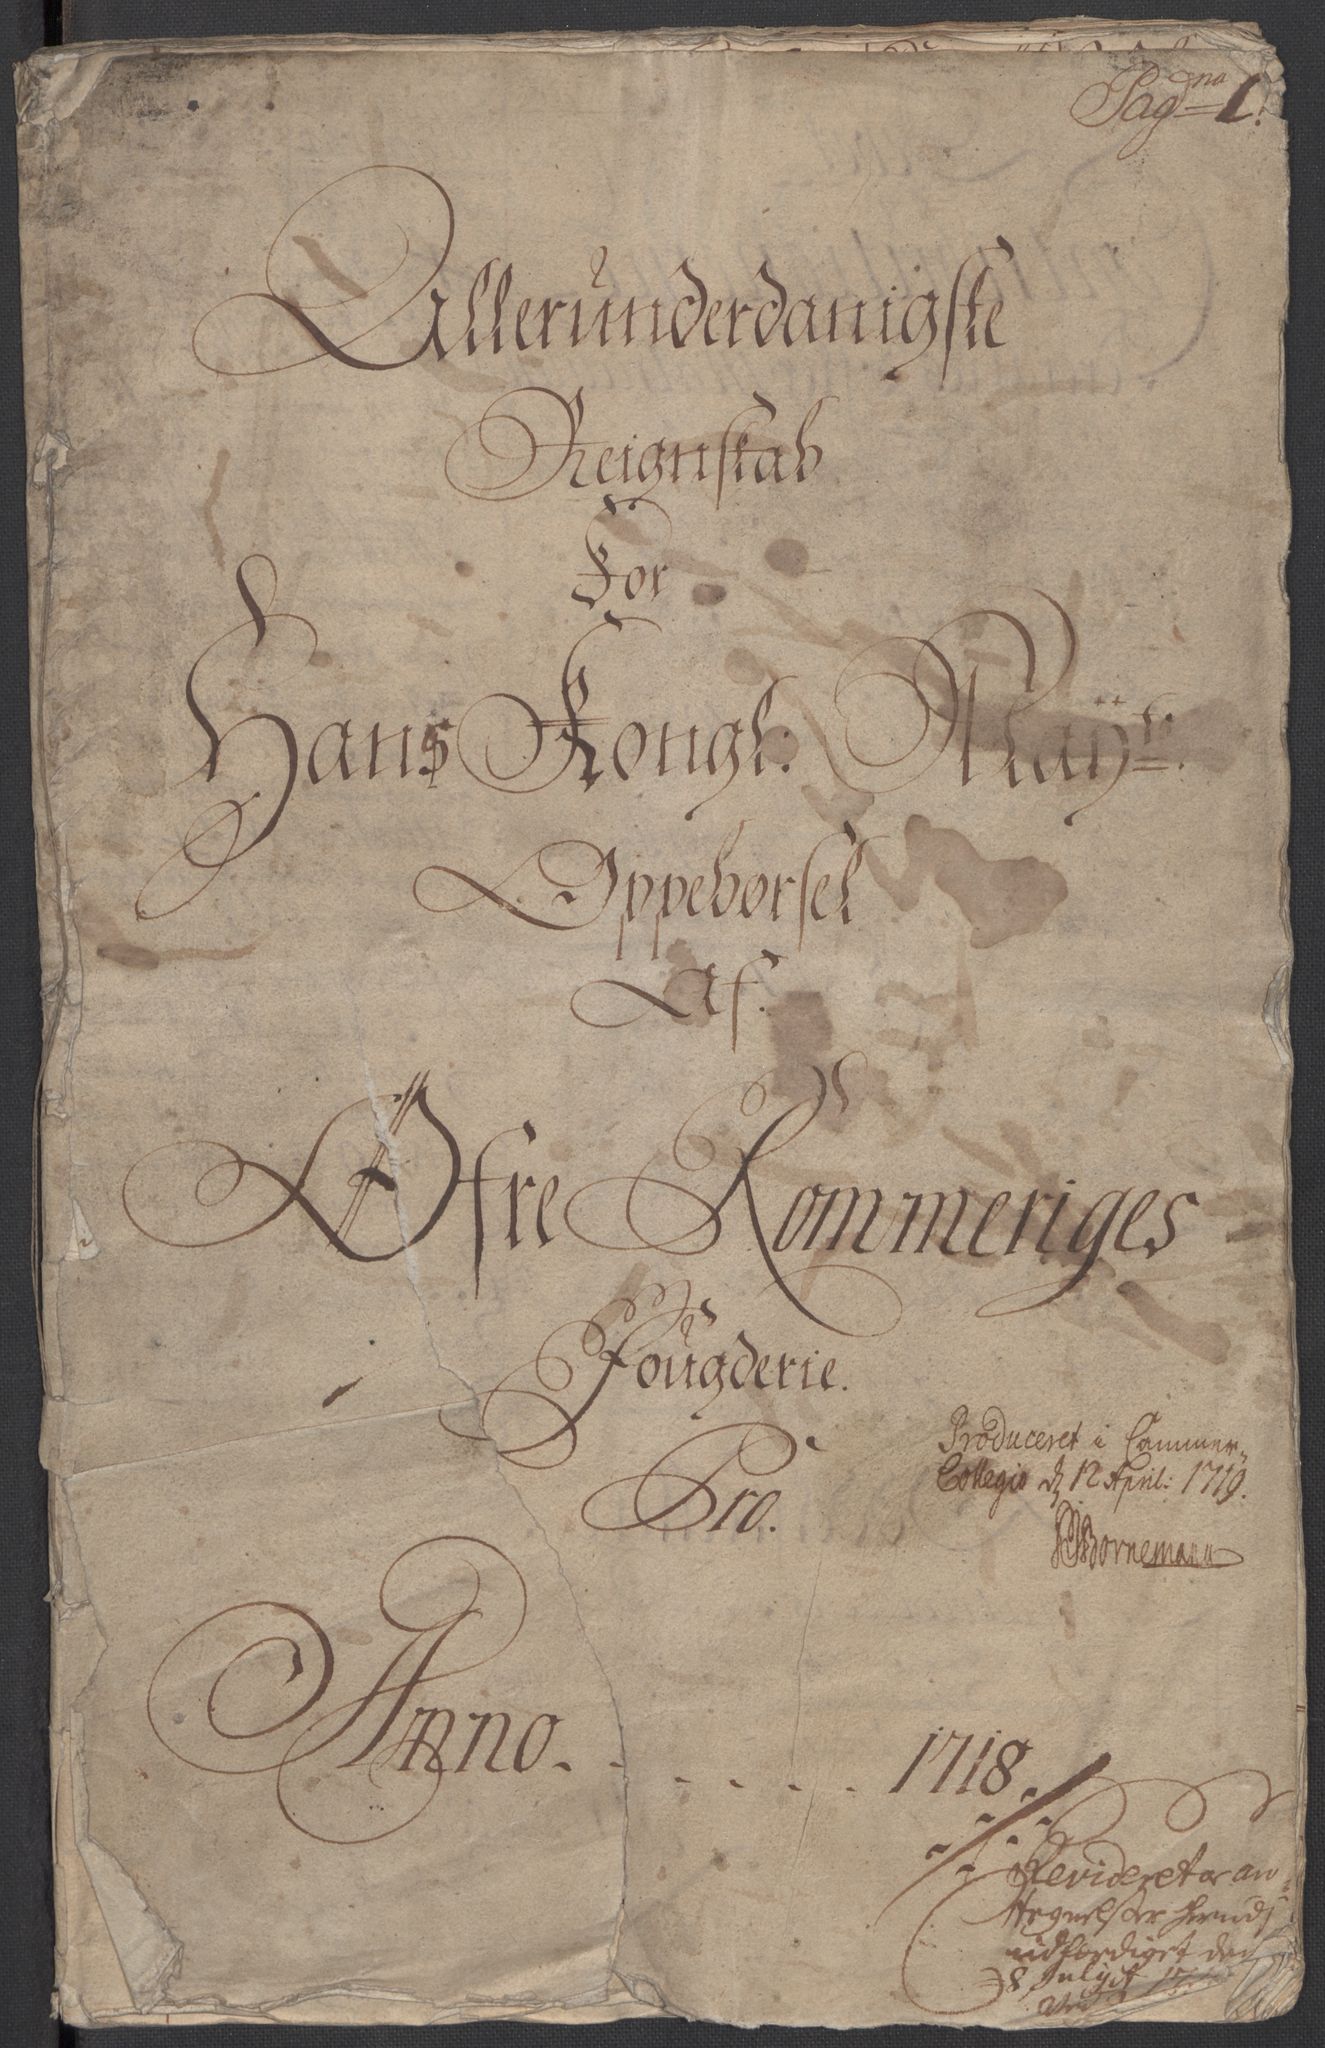 Pag na 1.
Allerunderdanigste
Reignskab
For
Hans Kongl: Maÿts:
Oppebørsel
Af.
Øfre Rommeriges
Fougderie.
Pro.
Produceret i Cammer-
Collegio d 12 April: 1719.
Bornemann
Anno. . . . . . . 1718.
Revideret og an-
tegnelser
udferdiget den
8 Julÿ